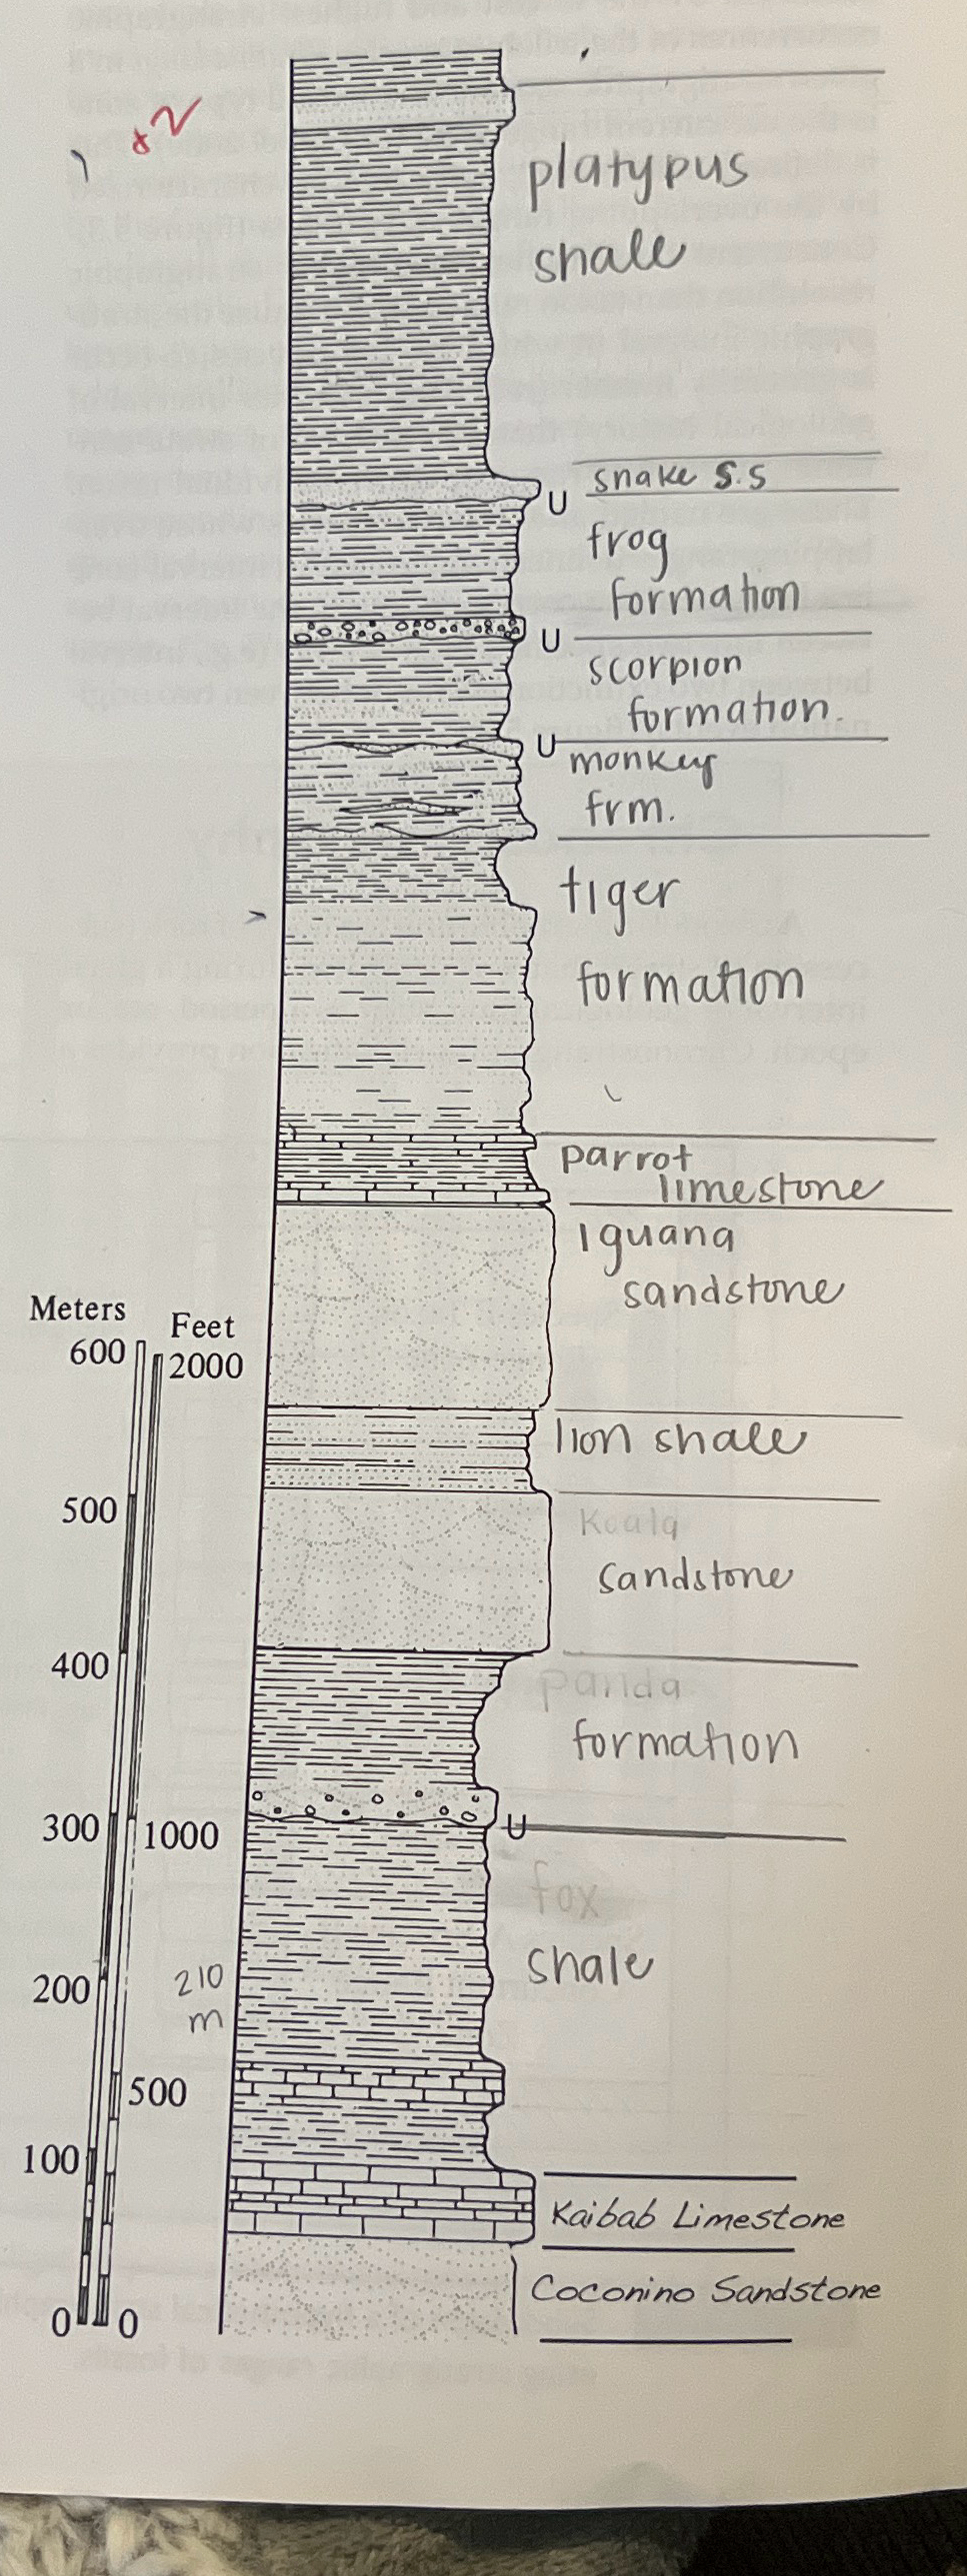 platypus
shale
snake s.s
U
frog
formation
U
scorpion
formation.
U
monkey
frm.
tiger
formation
parrot
limestone
Iguana
sandstone
Meters
Feet
600
2000
lion shale
500
Koala
sandstone
400
panda
formation
300
1000
U
fox
shale
210
m
200
500
100
Kaibab Limestone
Coconino Sandstone
0
0